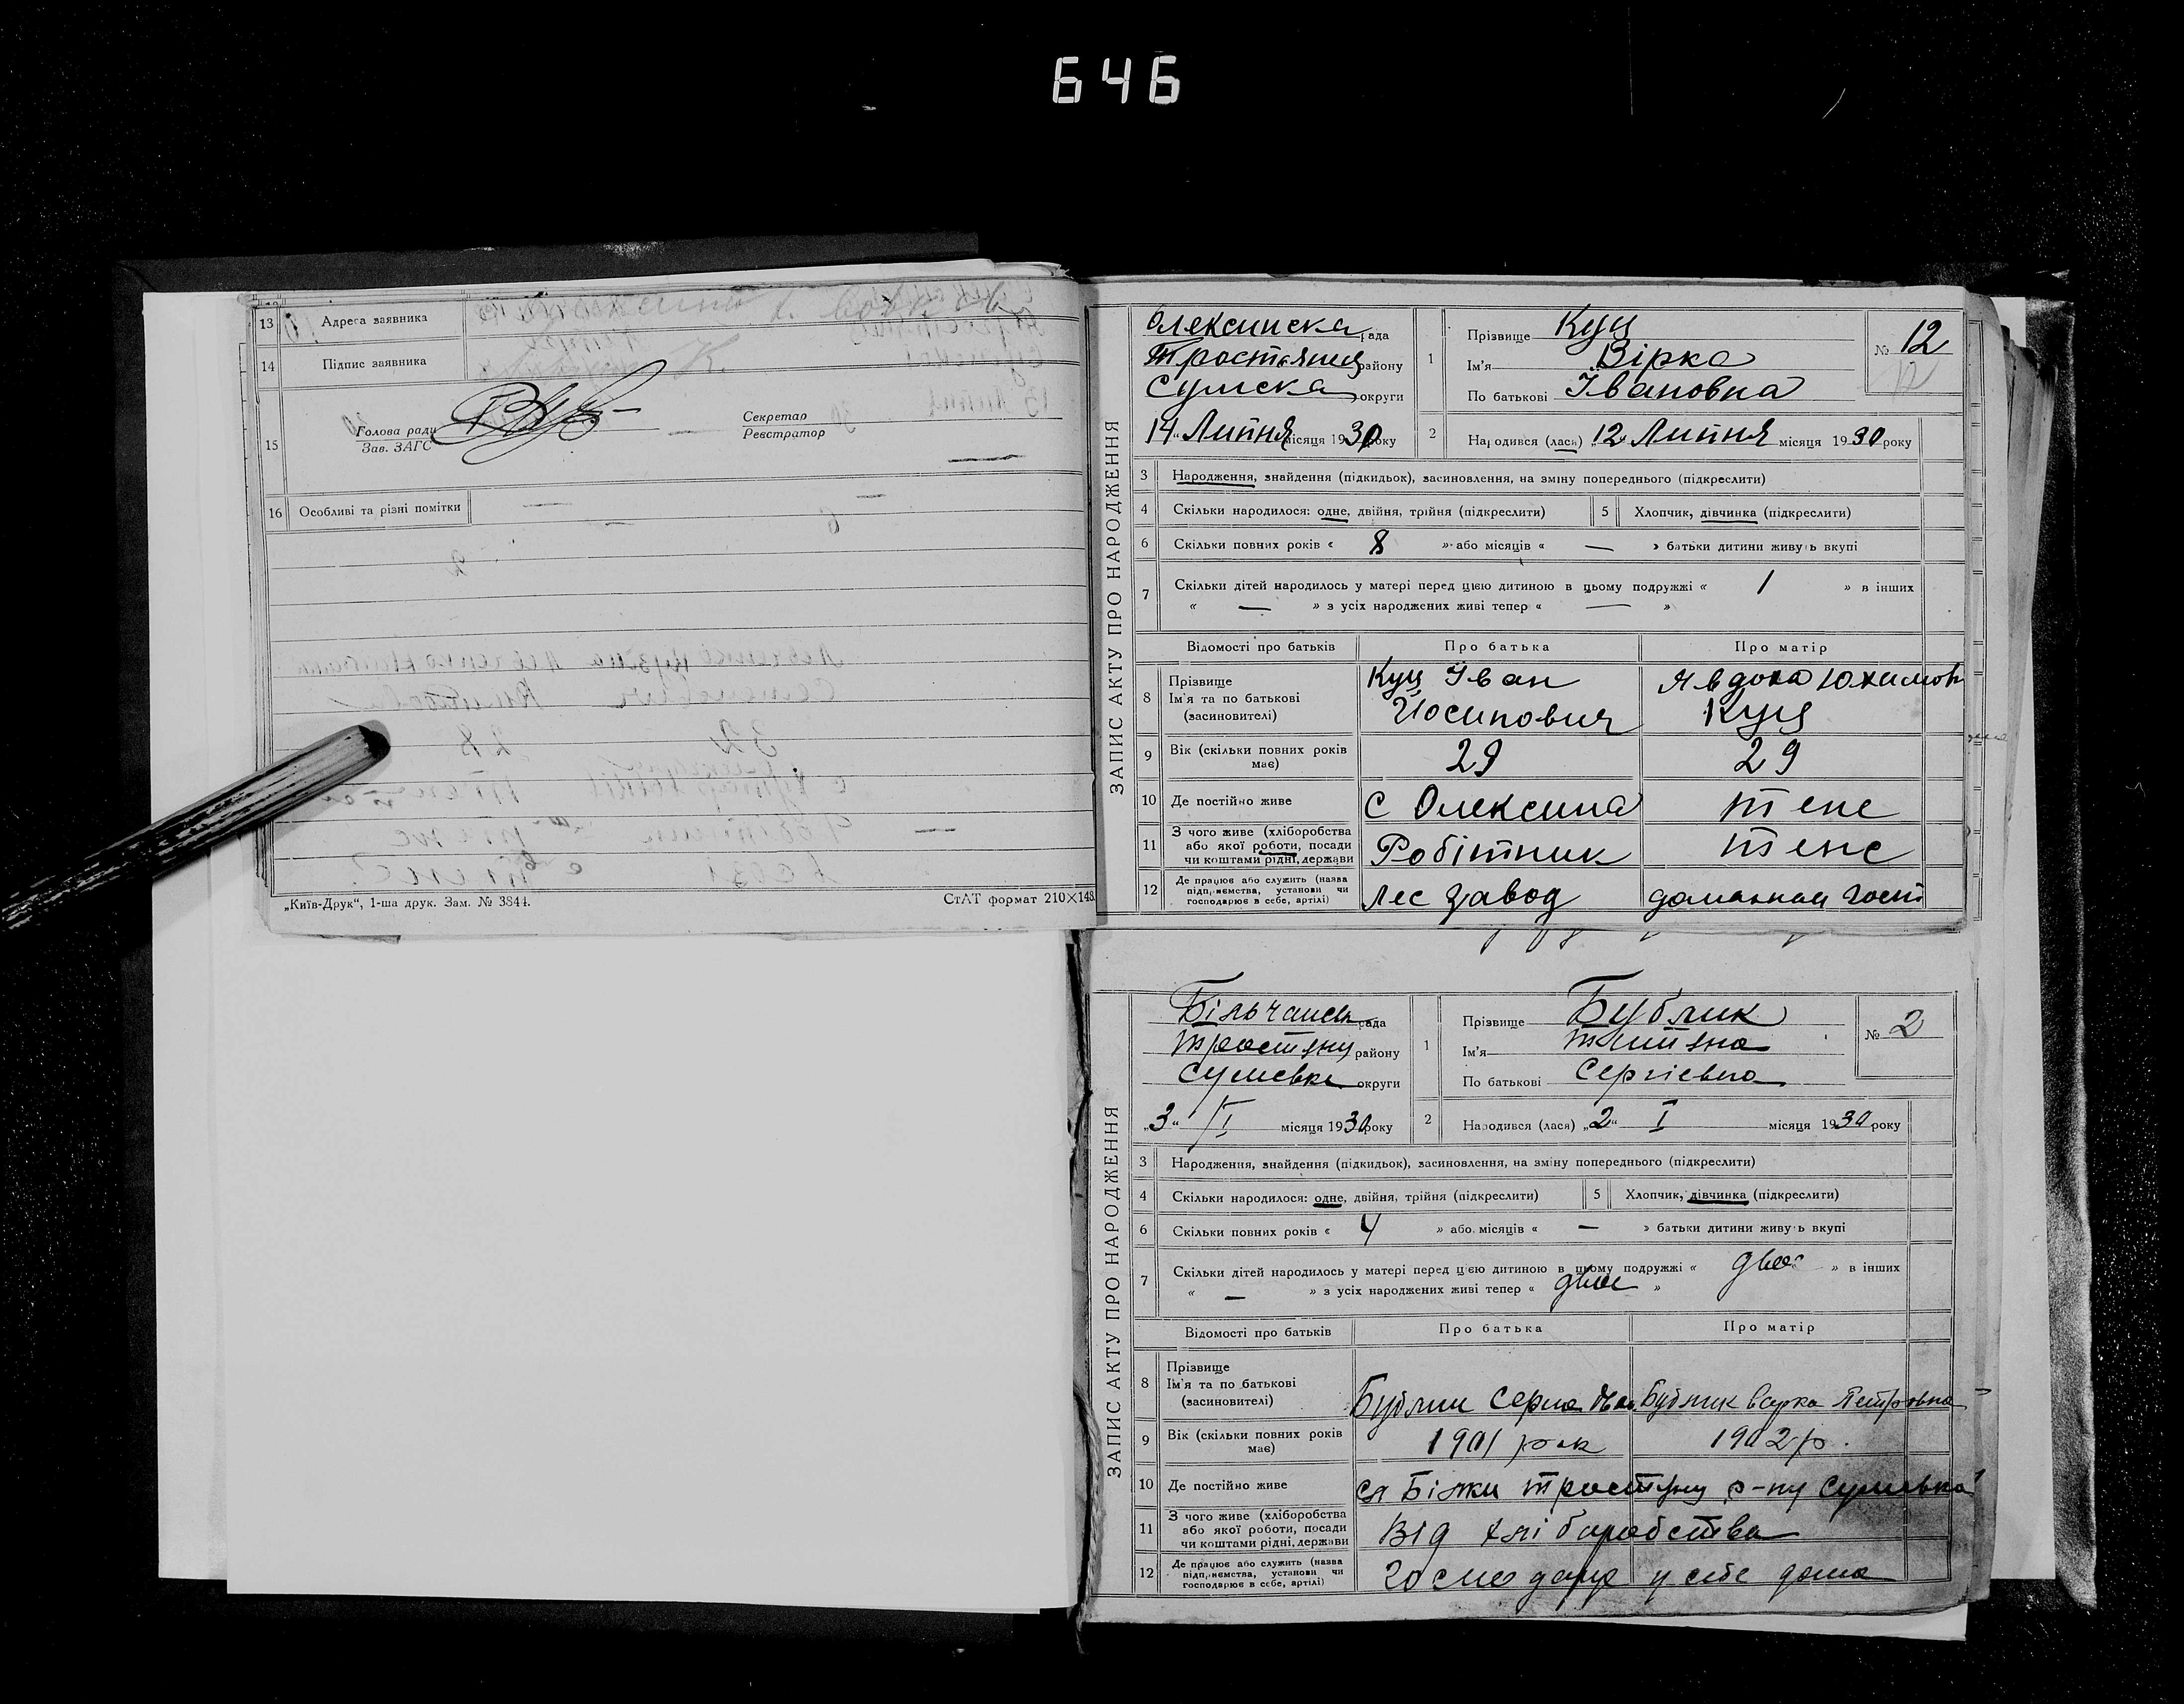 646
13 Адреса заявника
14 Підпис заявника
15 Голова ради
Зав. ЗАГС
Секретар
Реєстратор
16 Особливі та різні помітки
„Київ-Друк“, 1-ша друк. Зам. № 3844.
СтАТ формат 210×148
ЗАПИС АКТУ ПРО НАРОДЖЕННЯ
Олексинска рада
Тростянця району
Сумска округи
„14“ Липня місяця 1930 року
1 Прізвище Куц
Ім'я Вірка
По батькові Івановна
№ 12
12
2 Народився (лася) „12“ Липня місяця 1930 року
3 Народження, знайдення (підкидьок), засиновлення, на зміну попереднього (підкреслити)
4 Скільки народилося: одне, двійня, трійня (підкреслити)
5 Хлопчик, дівчинка (підкреслити)
6 Скільки повних років « 8 » або місяців « — » батьки дитини живуть вкупі
7 Скільки дітей народилось у матері перед цією дитиною в цьому подружжі « 1 » в інших
« — » з усіх народжених живі тепер « — »
Відомості про батьків Про батька Про матір
8 Прізвище
Ім'я та по батькові
(засиновителі)
Куц Іван
Йосипович
Явдоха Юхимов
Куц
9 Вік (скільки повних років
має)
29 29
10 Де постійно живе с Олексина теж
11 З чого живе (хліборобства
або якої роботи, посади
чи коштами рідні, держави
Робітник теж
12 Де працює або служить (назва
підприємства, установи чи
господарює в себе, артілі)
Лес завод
ЗАПИС АКТУ ПРО НАРОДЖЕННЯ
Більчанськ рада
Тростяну району
Сумська округи
„3“ I місяця 1930 року
1 Прізвище Бублик
Ім'я Титяна
По батькові Сергієвна
№ 2
2 Народився (лася) „2“ I місяця 1930 року
3 Народження, знайдення (підкидьок), засиновлення, на зміну попереднього (підкреслити)
4 Скільки народилося: одне, двійня, трійня (підкреслити)
5 Хлопчик, дівчинка (підкреслити)
6 Скільки повних років « 4 » або місяців « — » батьки дитини живуть вкупі
7 Скільки дітей народилось у матері перед цією дитиною в цьому подружжі « двоє » в інших
« — » з усіх народжених живі тепер « двоє »
Відомості про батьків Про батька Про матір
8 Прізвище
Ім'я та по батькові
(засиновителі)
Бублик Бублик Варка Петровна
9 Вік (скільки повних років
має)
1901 рок 1902 р.
10 Де постійно живе
Білки Тростяну р-ну
11 З чого живе (хліборобства
або якої роботи, посади
чи коштами рідні, держави
Від хліборобства
12 Де працює або служить (назва
підприємства, установи чи
господарює в себе, артілі)
у себе дома